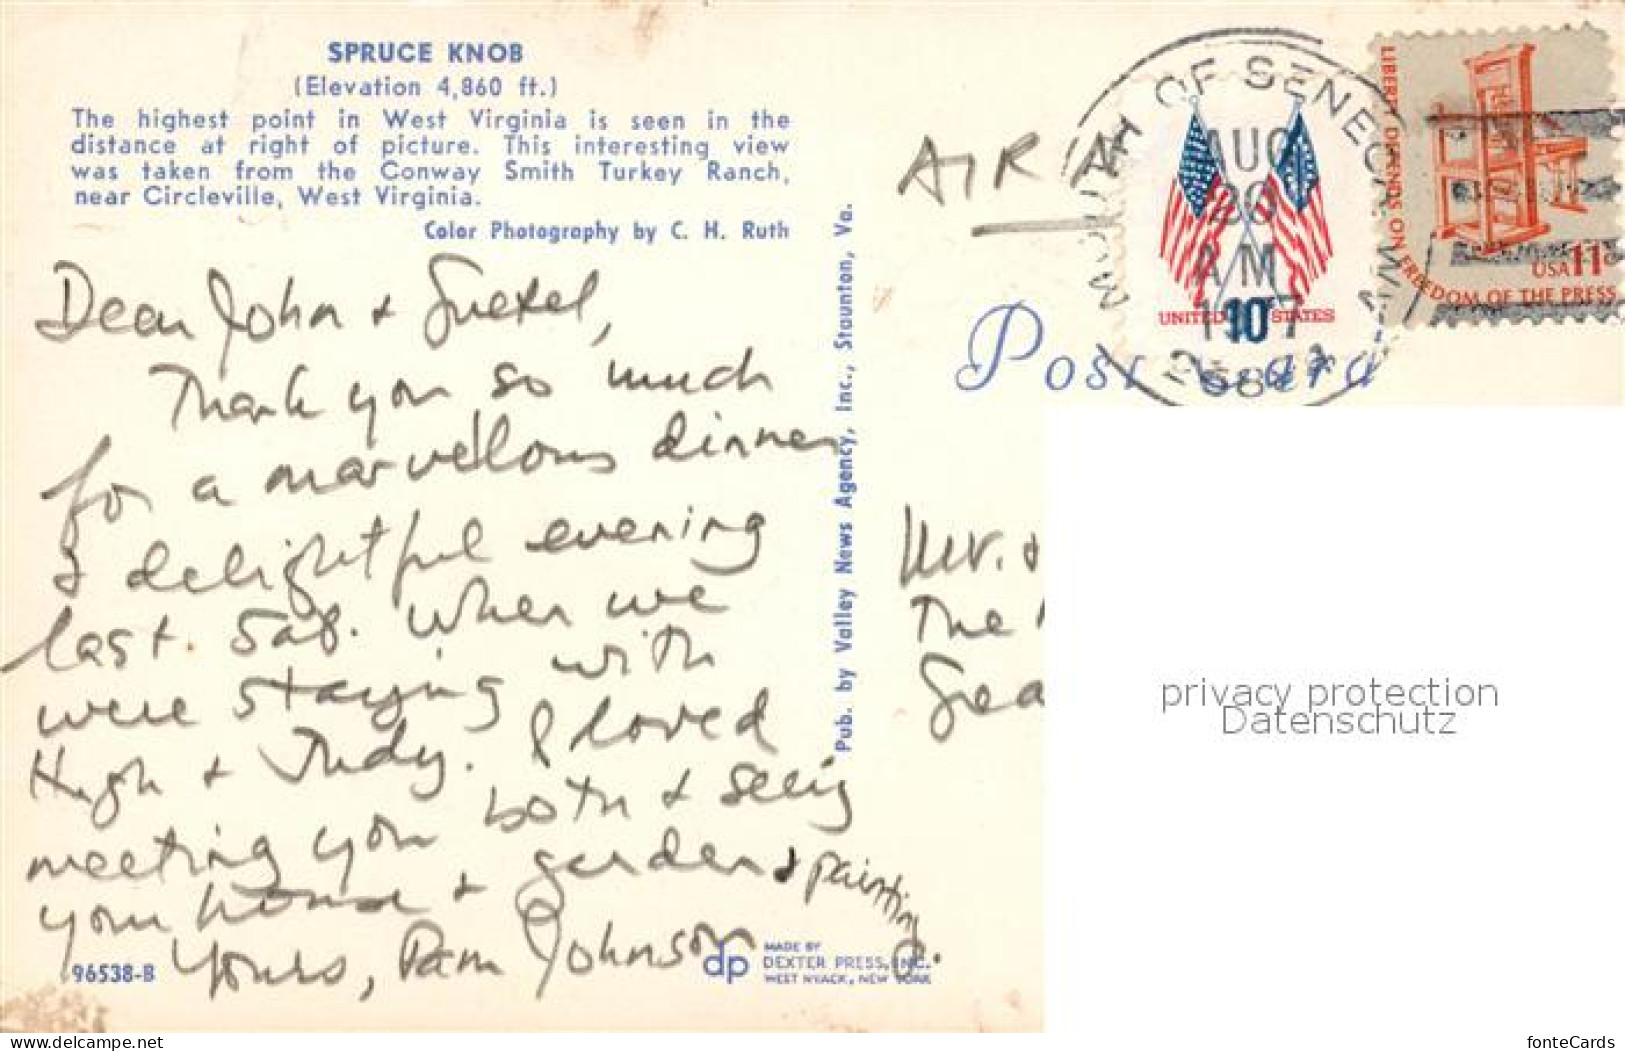 SPRUCE KNOB
(Elevation 4,860 ft.)
The highest point in West Virginia is seen in the
distance at right of picture. This interesting view
was taken from the Conway Smith Turkey Ranch,
near Circleville, West Virginia.
Color Photography by C. H. Ruth
Dear John &
Thank you so much
for a marvellous dinner
& delightful evening
last. Sat. when we
were staying with
Hugh & Judy. I loved
meeting you both & seeing
your house & garden & paintings.
Yours, Pam Johnson
96538-B
dp
MADE BY
DEXTER PRESS, INC.
WEST NYACK, NEW YORK
Pub. by Valley News Agency, Inc., Staunton, Va.
AIR
MOUTH OF SENECA W
AUG
20
AM
UNITED STATES
10c
LIBERTY DEPENDS ON FREEDOM OF THE PRESS
USA 11c
Post Card
Mr. &
The
Sea
privacy protection
Datenschutz
www.delcampe.net
fonteCards